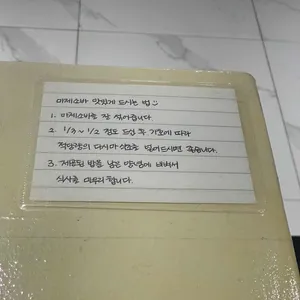 마제소바 맛있게 드시는 법
1. 마제소바를 잘 섞어줍니다.
2. 1/3 ~ 1/2 정도 드신 후 기호에 따라
적당량의 다시마 식초를 넣어드시면 좋습니다.
3. 제공된 밥을 남은 양념에 비벼서
식사를 마무리합니다.